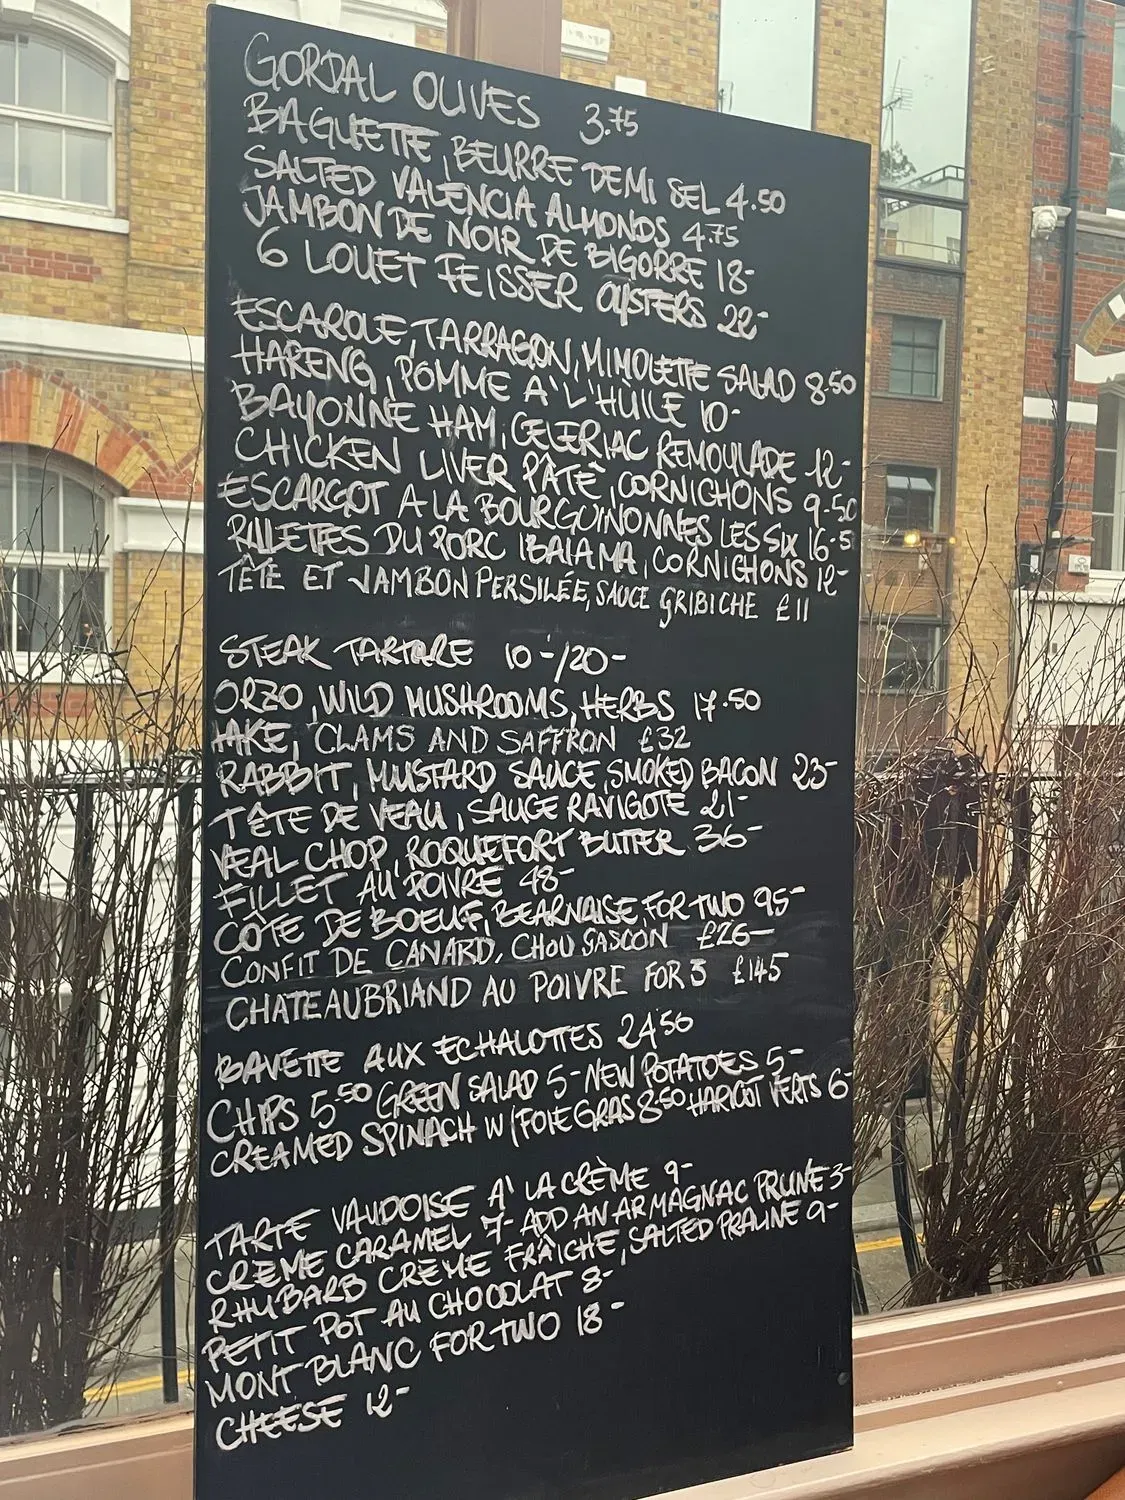 GORDAL OLIVES 3.75
BAGUETTE, BEURRE DEMI SEL 4.50
SALTED VALENCIA ALMONDS 4.75
JAMBON DE NOIR DE BIGORRE 18-
6 LOUET FEISSER OYSTERS 22-
ESCAROLE, TARRAGON, MIMOLETTE SALAD 8.50
HARENG, POMME A' L'HUILE 10-
BAYONNE HAM, CELERIAC REMOULADE 12-
CHICKEN LIVER PÂTÊ, CORNICHONS 9.50
ESCARGOT A LA BOURGUINONNES LES SIX 16.5
RILLETTES DU PORC IBAIAMA, CORNICHONS 12-
TÊTE ET JAMBON PERSILÉE, SAUCE GRIBICHE £11
STEAK TARTARE 10-/20-
ORZO, WILD MUSHROOMS, HERBS 17.50
HAKE, CLAMS AND SAFFRON £32
RABBIT, MUSTARD SAUCE, SMOKED BACON 23-
TÊTE DE VEAU, SAUCE RAVIGOTE 21-
VEAL CHOP, ROQUEFORT BUTTER 36-
FILLET AU POIVRE 48-
CÔTE DE BOEUF, BEARNAISE, FOR TWO 95-
CONFIT DE CANARD, CHOU GASCON £26-
CHATEAUBRIAND AU POIVRE FOR 3 £145
BAVETTE AUX ECHALOTTES 24.50
CHIPS 5.50 GREEN SALAD 5- NEW POTATOES 5-
CREAMED SPINACH W/FOIE GRAS 8.50 HARICOT VERTS 6-
TARTE VAUDOISE A' LA CRÈME 9-
CRÈME CARAMEL 7- ADD AN ARMAGNAC PRUNE 3-
RHUBARB CRÈME FRÂICHE, SALTED PRALINE 9-
PETIT POT AU CHOCOLAT 8-
MONT BLANC FOR TWO 18-
CHEESE 12-